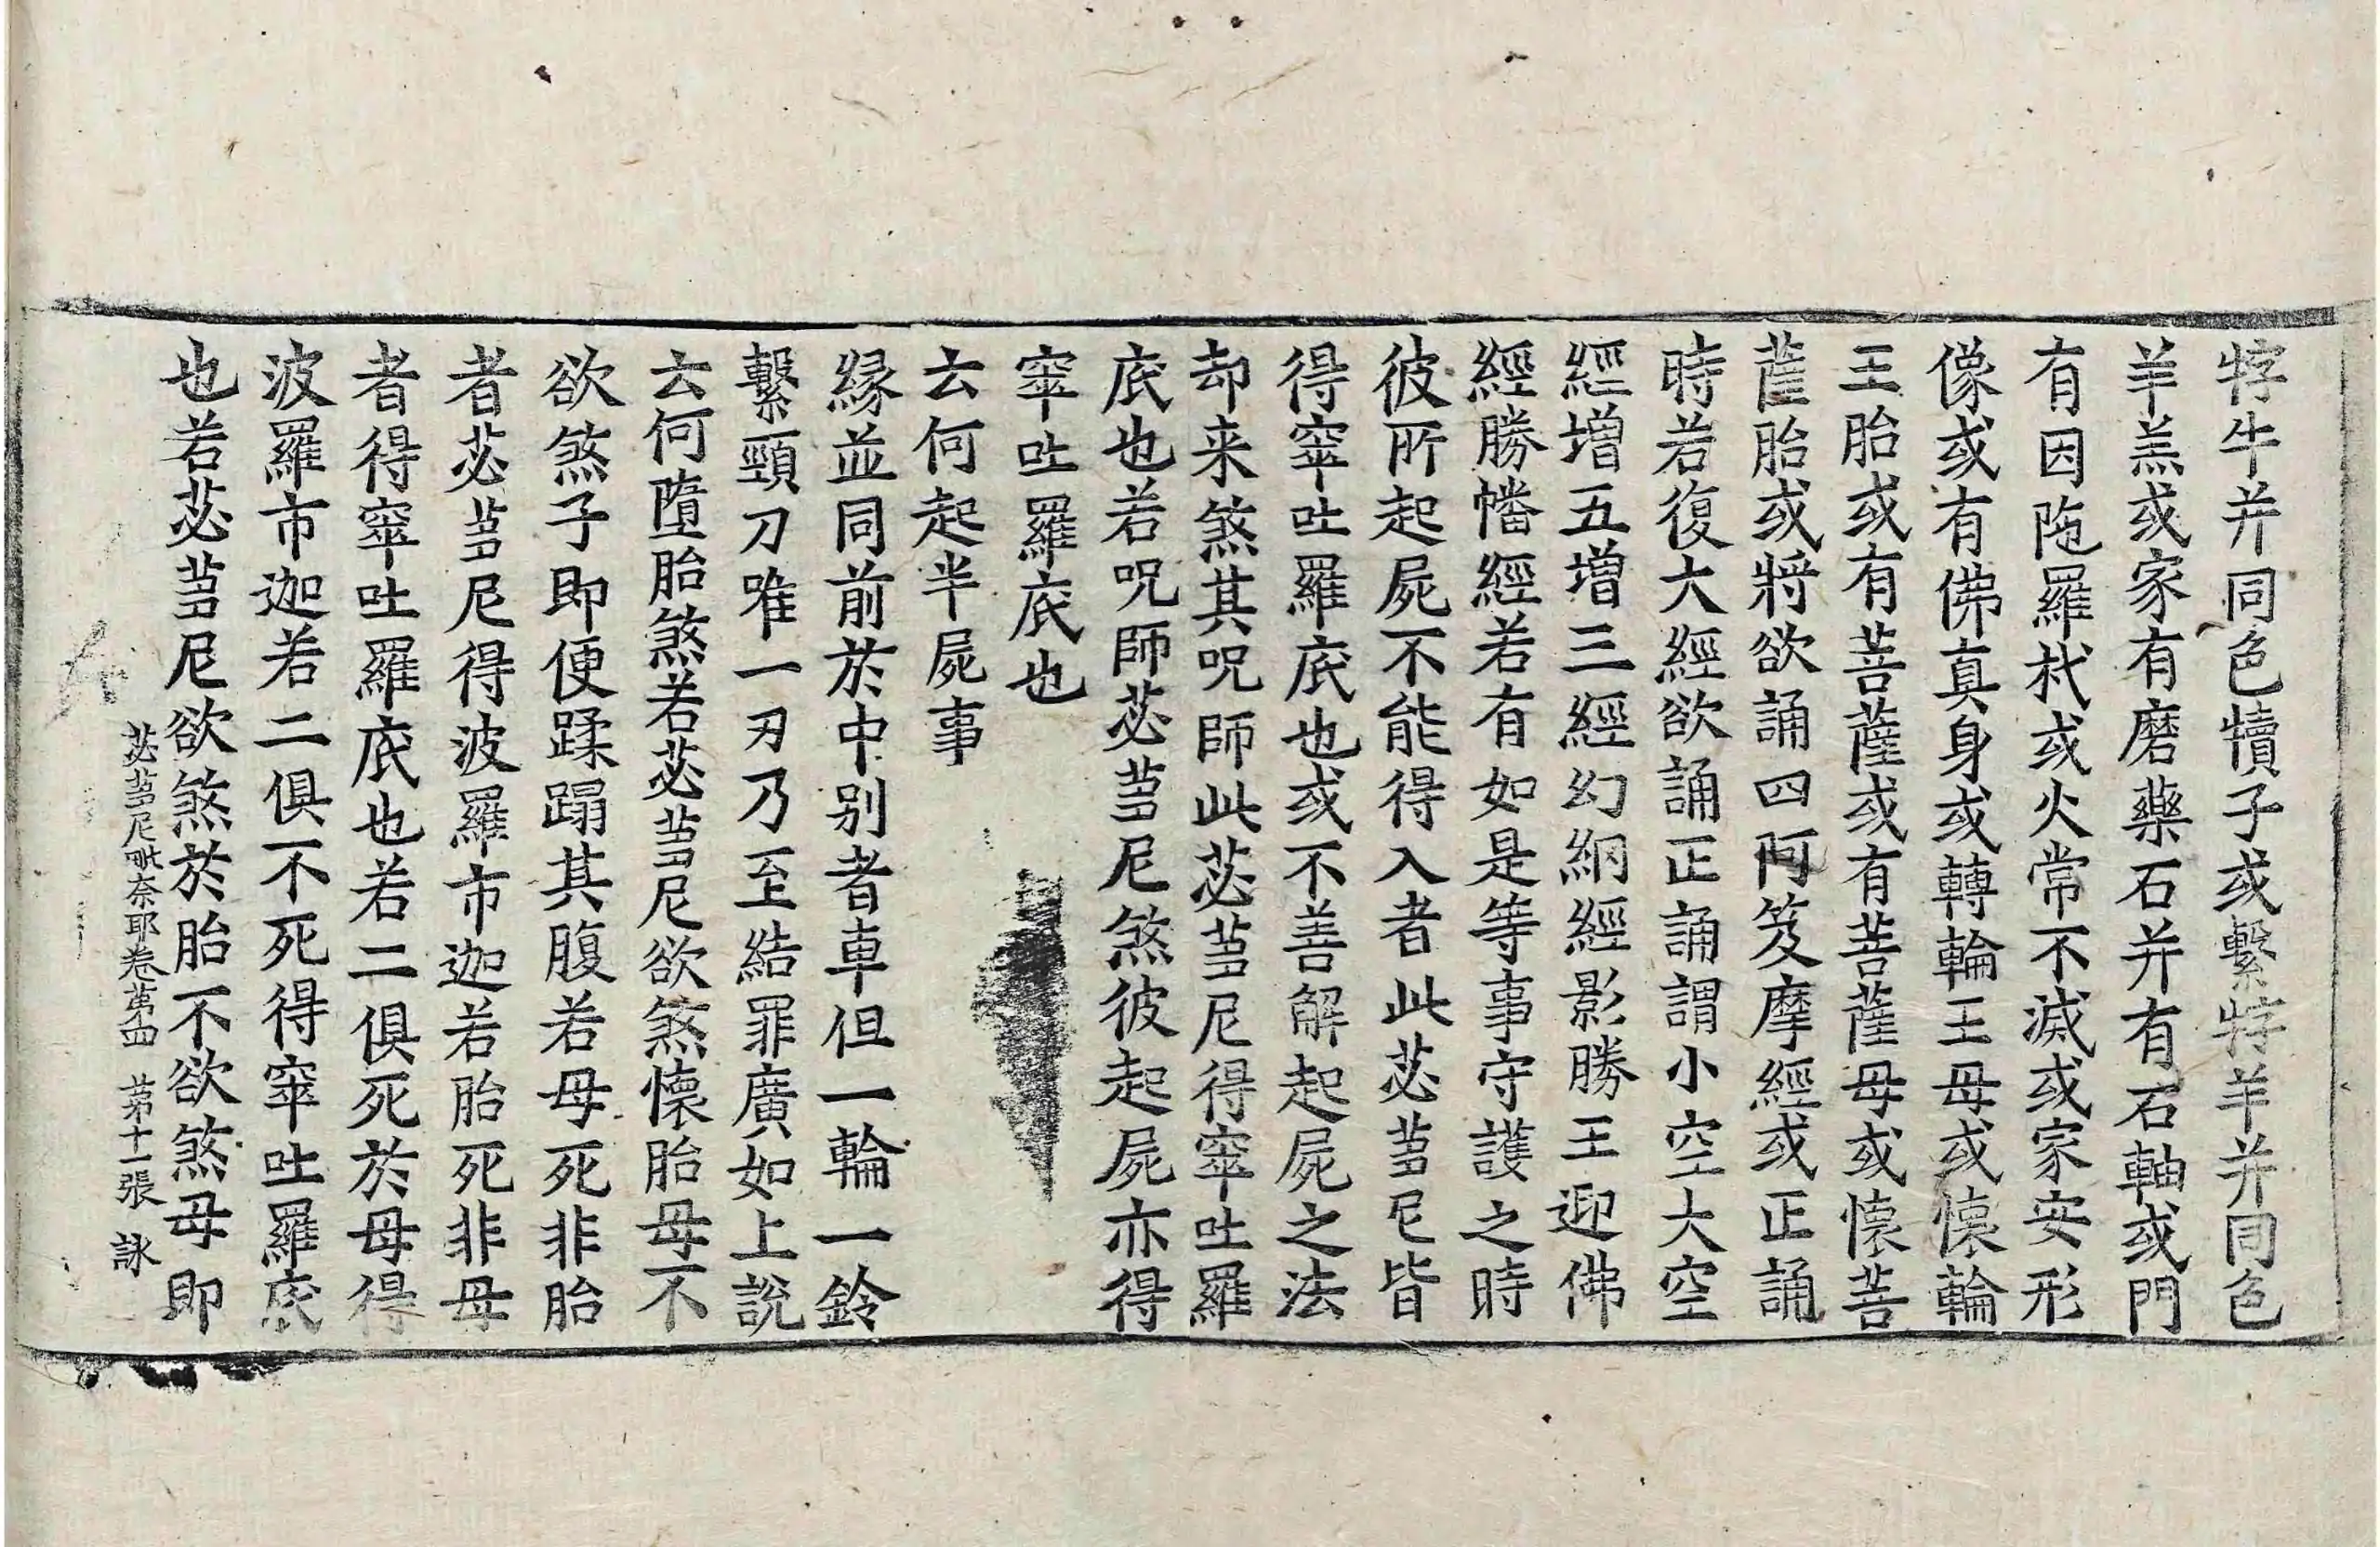 牸牛并同色犢子或繫牸羊并同色
羊羔或家有磨藥石并有石軸或門
有因陁羅杙或火常不滅或家安形
像或有佛真身或轉輪王母或懷輪
王胎或有菩薩或有菩薩母或懷菩
薩胎或將欲誦四阿笈摩經或正誦
時若復大經欲誦正誦謂小空大空
經增五增三經幻網經影勝王迎佛
經勝幡經若有如是等事守護之時
彼所起屍不能得入者此苾芻尼皆
得窣吐羅底也或不善解起屍之法
却来煞其呪師此苾芻尼得窣吐羅
底也若呪師苾芻尼煞彼起屍亦得
窣吐羅底也
云何起半屍事
緣並同前於中別者車但一輪一鈴
繫頸刀唯一刃乃至結罪廣如上說
云何墮胎煞若苾芻尼欲煞懷胎母不
欲煞子即便蹂蹋其腹若母死非胎
者苾芻尼得波羅市迦若胎死非母
者得窣吐羅底也若二俱死於母得
波羅市迦若二俱不死得窣吐羅底
也若苾芻尼欲煞於胎不欲煞母即
苾芻尼毗奈耶卷第四 第十一張 詠